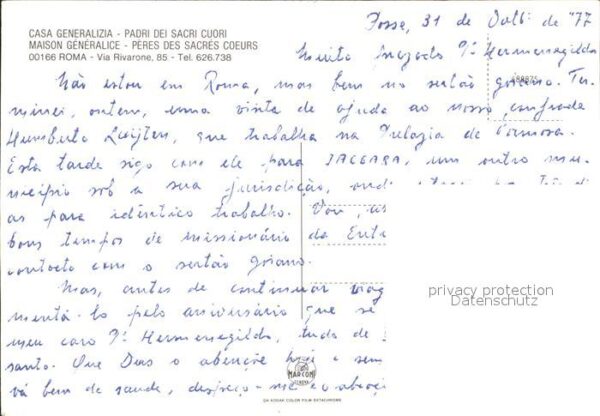 CASA GENERALIZIA - PADRI DEI SACRI CUORI
MAISON GÉNÉRALICE - PERES DES SACRÉS COEURS
00166 ROMA - Via Rivarone, 85 - Tel. 626.738
Posse, 31 de Out. de '77
Muito prezado Pe Hermenegildo
Não estou em Roma, mas bem no sertão goiano. Ter-
minei, ontem, uma visita de ajuda ao nosso confrade
Humberto Luijten, que trabalha na Prelazia de Formosa.
Esta tarde sigo com ele para IACIARA, um outro mu-
nicípio sob a sua jurisdição, onde
as para idêntico trabalho. Vou,
bons tempos de missionário da
contacto com o sertão goiano.
Mas, antes de continuar
mentá-lo pelo aniversário que se
meu caro Pe Hermenegildo, tudo de
santo. Que Deus o abençoe hoje e sem
vá bem de saude, despeço-me
privacy protection
Datenschutz
MARCONI
GENOVA
ON KODAK COLOR FILM EKTACHROME